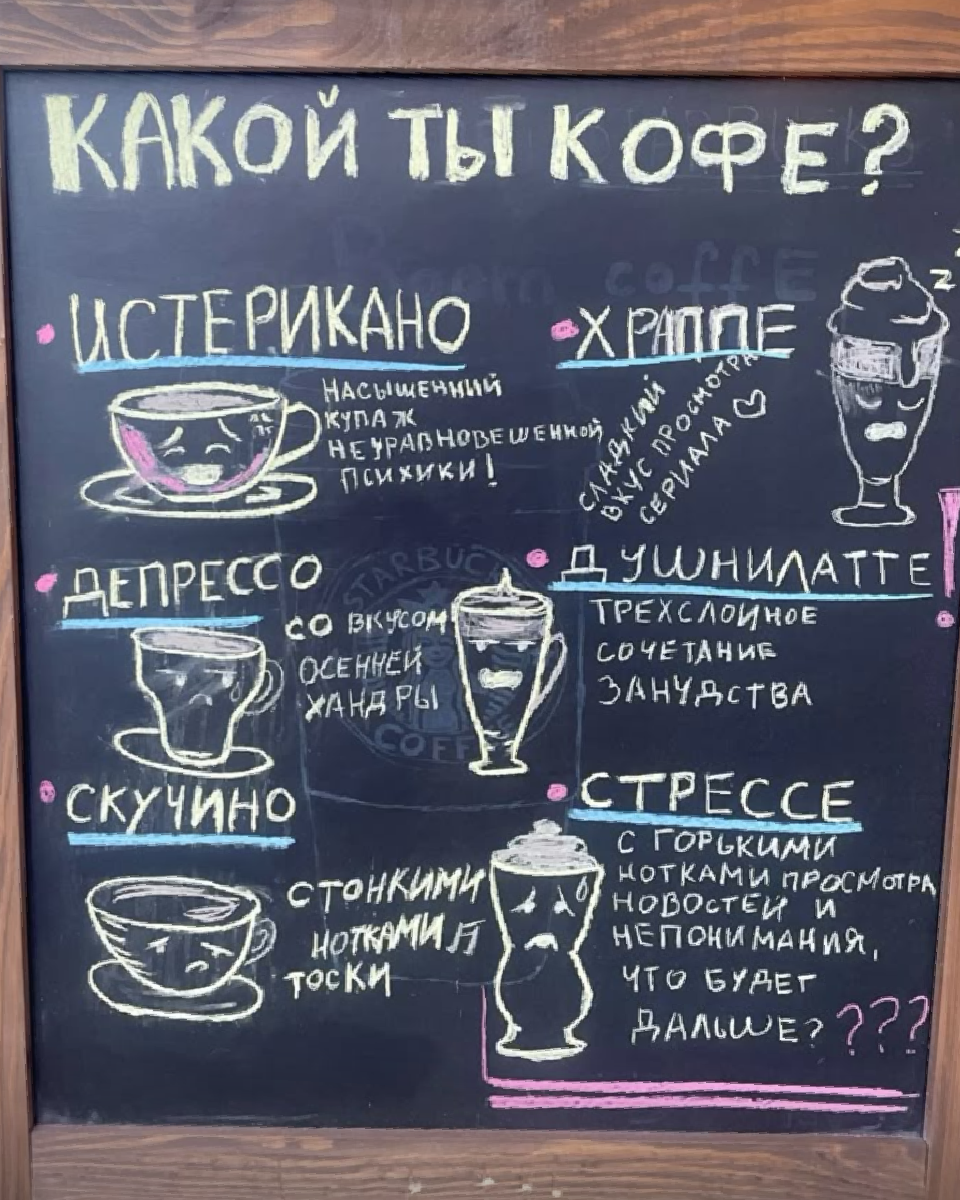 КАКОЙ ТЫ КОФЕ?
ИСТЕРИКАНО
НАСЫЩЕННИЙ
КУПАЖ
НЕУРАВНОВЕШЕННОЙ
ПСИХИКИ!
ХРАППЕ
СЛАДКИЙ
ВКУС ПРОСМОТРА
СЕРИАЛА
Z
ДЕПРЕССО
СО ВКУСОМ
ОСЕННЕЙ
ХАНДРЫ
ДУШНИЛАТТЕ
ТРЕХСЛОЙНОЕ
СОЧЕТАНИЕ
ЗАНУДСТВА
СКУЧИНО
С ТОНКИМИ
НОТКАМИ
ТОСКИ
СТРЕССЕ
С ГОРЬКИМИ
НОТКАМИ ПРОСМОТРА
НОВОСТЕЙ И
НЕПОНИМАНИЯ,
ЧТО БУДЕТ
ДАЛЬШЕ? ???
STARBUCKS
COFFEE